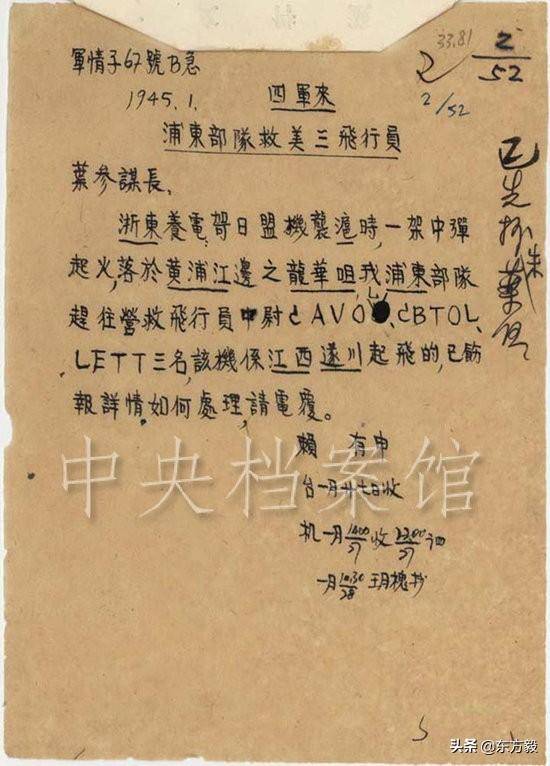 33.81
2
2/52
2/52
軍情子67號B急
1945.1.
四軍來
浦東部隊救美三飛行員
葉參謀長、
浙東養電哿日盟機襲滬時,一架中彈
起火,落於黄浦江邊之龍華咀,我浦東部隊
趕往營救飛行員中尉CAVO、CBTOL、
LETT三名,該機係江西遂川起飛的,已飭
報詳情,如何處理,請電覆。
賴 有申
台一月廿七日收
机一月1400/27收2200/27
一月10.30/28 玥槐抄
已先抄朱
中央档案馆
头条@东方毅